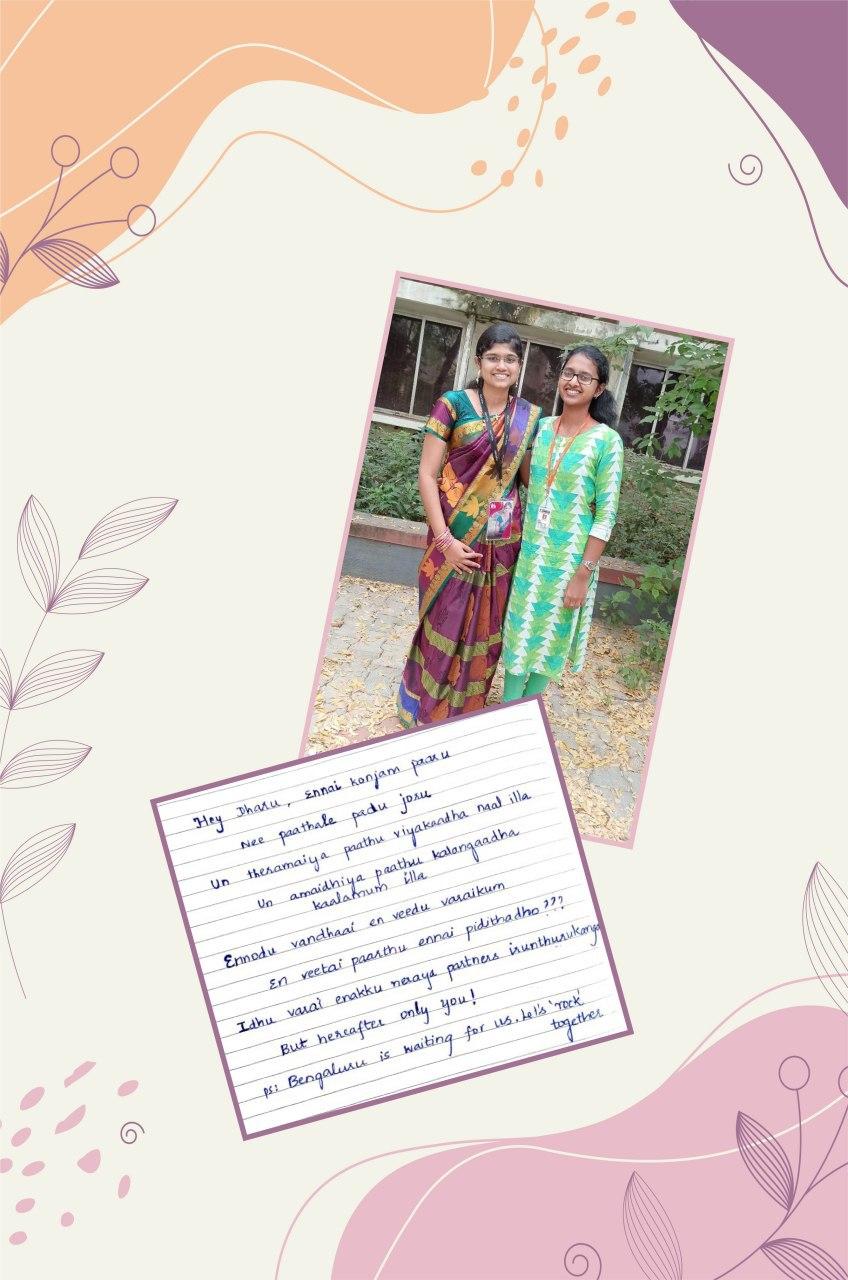 Hey Dharu, Ennai konjam paaru
Nee paathale padu joru
Un theramaiya paathu viyakaadha naal illa
Un amaidhiya paathu kalangaadha
kaalamum illa
Ennodu vandhaai en veedu varaikum
En veetai paarthu ennai pidithadho???
Idhu varai enakku neraya partners irunthurukanga
But hereafter only you!
ps: Bengaluru is waiting for us. Let's 'rock'
together